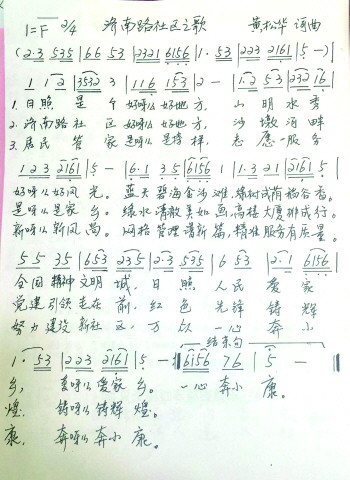 1=F 2/4 济南路社区之歌 黄松华 词曲
(2·3 535 | 66 53 | 2321 6156 | 1· 53 | 223 2161 | 5 -)
1 12 | 3532 3 | 116 153 | 2 - | 1·2 53 | 232 16 |
1. 日照 是 个 好呀么 好地 方, 山 明水 秀
2. 济南路社 区 好呀么 好地 方, 沙 墩河 畔
3. 居民 管 家 是呀么 是榜 样, 志 愿 服务
123 2161 | 5 - | 6·1 35 | 6156 1 | 1·3 21 | 2161 5 |
好呀么好风 光。 蓝天 碧海金沙滩,
是呀么是家 乡。 绿水清澈美如画, 高楼大厦排成行。
新呀么新风 尚。 网格管理谱新篇, 精准服务有质量。
5 5 35 | 653 235 | 2·3 535 | 6 53 | 2·1 6156 |
全国 精神 文明 城, 日 照 人民 爱 家
党建 引领 走在 前, 红 色 先锋 铸 辉
努力 建设 新社 区, 万 众 一心 奔 小
结束句
1· 53 | 223 2161 | 5 - :‖ 6156 76 | 5 - ‖
乡, 爱呀么爱家 乡。 一心 奔小 康。
煌, 铸呀么铸辉 煌。
康, 奔呀么奔小 康。